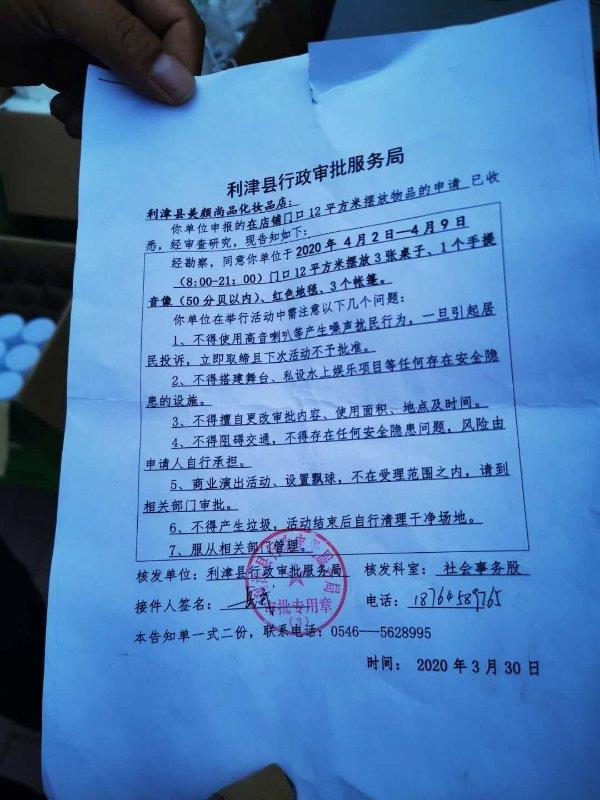 利津县行政审批服务局
利津县美颜尚品化妆品店：
你单位申报的在店铺门口12平方米摆放物品的申请 已收
悉，经审查研究，现告知如下：
经勘察，同意你单位于 2020 年 4 月 2 日—4 月 9 日
（8:00-21：00）门口12平方米摆放 3 张桌子、1 个手提
音像（50 分贝以内）、红色地毯、3 个帐篷。
你单位在举行活动中需注意以下几个问题：
1、不得使用高音喇叭等产生噪声扰民行为，一旦引起居
民投诉，立即取缔且下次活动不予批准。
2、不得搭建舞台、私设水上娱乐项目等任何存在安全隐
患的设施。
3、不得擅自更改审批内容、使用面积、地点及时间。
4、不得阻碍交通，不得存在任何安全隐患问题，风险由
申请人自行承担。
5、商业演出活动、设置飘球，不在受理范围之内，请到
相关部门审批。
6、不得产生垃圾，活动结束后自行清理干净场地。
7、服从相关部门管理。
核发单位：利津县行政审批服务局 核发科室：社会事务股
接件人签名： 电话：18764589765
审批专用章
（3）
本告知单一式二份，联系电话：0546---5628995
时间： 2020 年 3 月 30 日